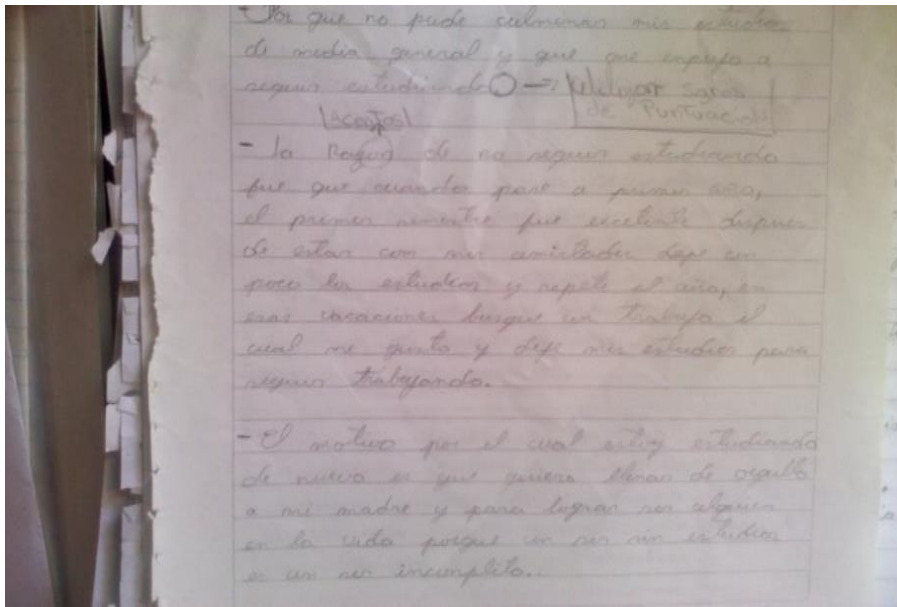 - Por que no pude culminar mis estudios
de media general y que me empujo a
seguir estudiando → Mejorar Signos
de Puntuación
Acentos
- la Razon de no seguir estudiando
fue que cuando pase a primer año,
el primer semestre fue excelente despues
de estar con mis amistades deje un
poco los estudios y repeti el año, en
esas vacaciones busque un trabajo el
cual me gusto y deje mis estudios para
seguir trabajando.
- El motivo por el cual estoy estudiando
de nuevo es que quiero llenar de orgullo
a mi madre y para lograr ser alguien
en la vida porque un ser sin estudios
es un ser incompleto..